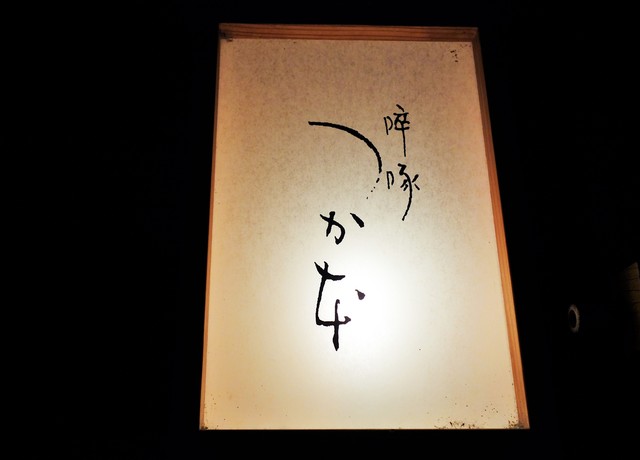 啐啄
つか本